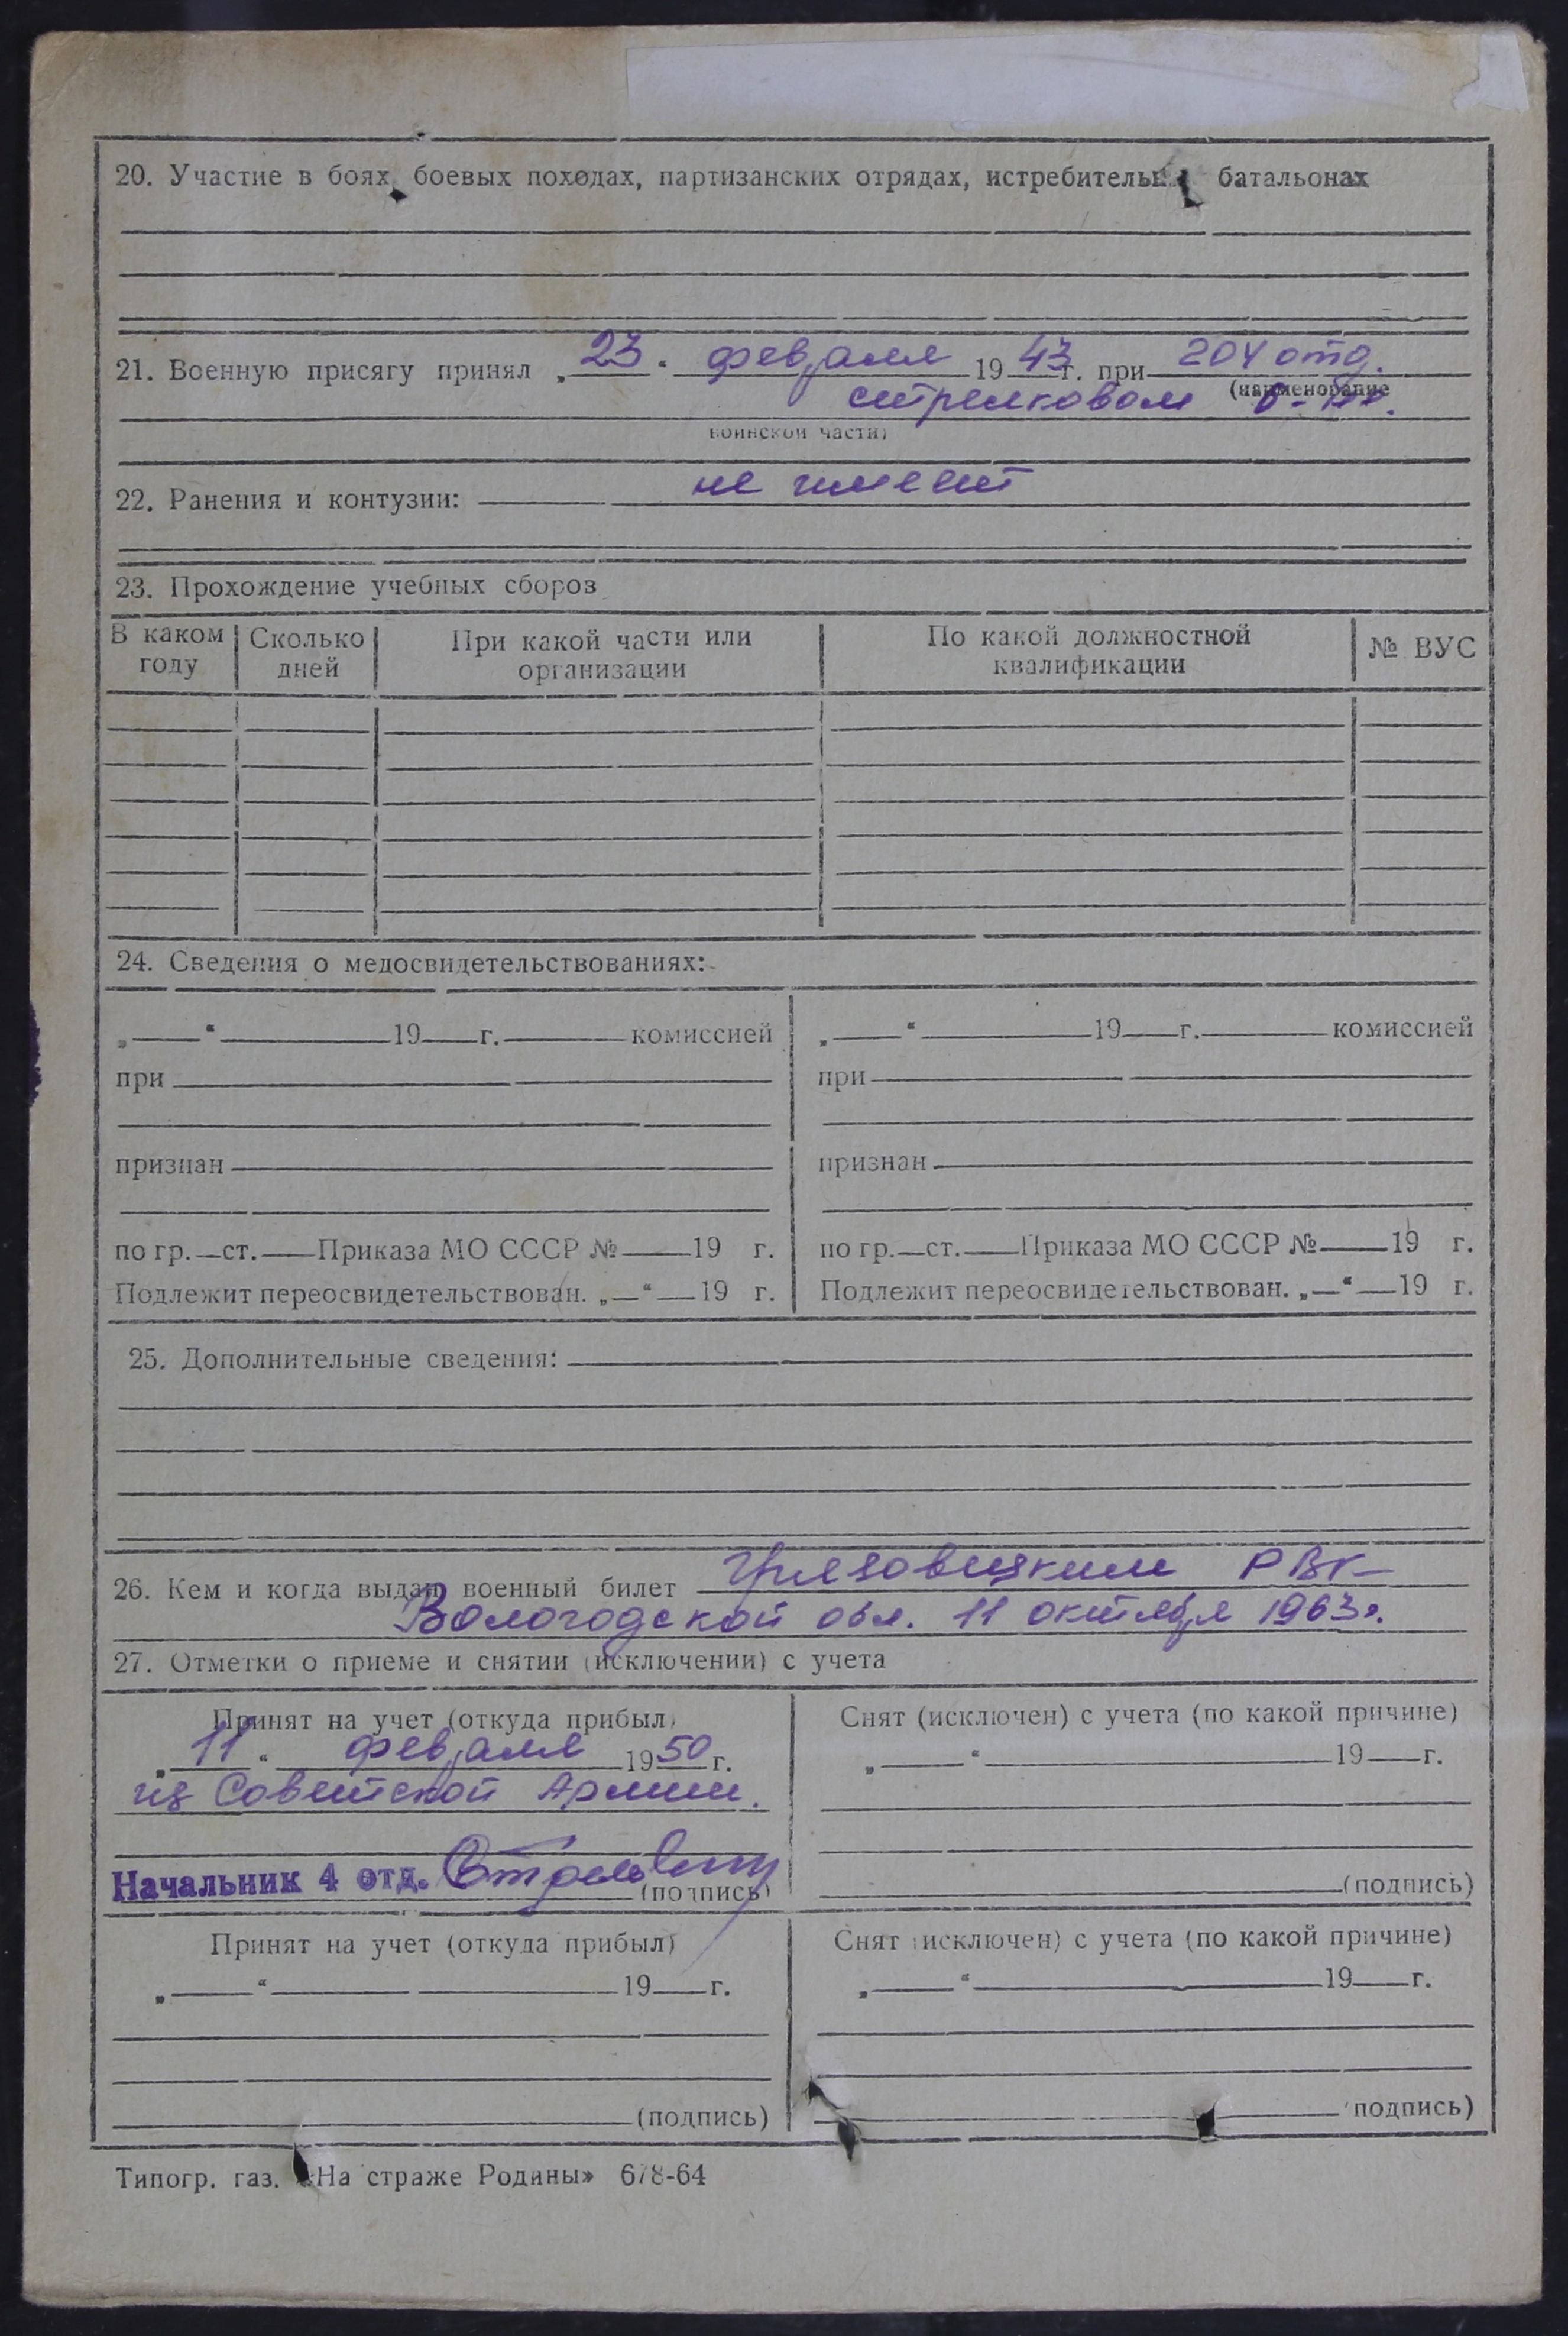 20. Участие в боях, боевых походах, партизанских отрядах, истребительн батальонах
21. Военную присягу принял „23“ февраля 1943 г. при 204 отд.
(наименование
стрелковом б-не.
воинской части)
22. Ранения и контузии: не имеет
23. Прохождение учебных сборов
В каком году
Сколько дней
При какой части или организации
По какой должностной квалификации
№ ВУС
24. Сведения о медосвидетельствованиях:
„ “ 19 г. комиссией
при
признан
по гр. ст. Приказа МО СССР № 19 г.
Подлежит переосвидетельствован. „ “ 19 г.
„ “ 19 г. комиссией
при
признан
по гр. ст. Приказа МО СССР № 19 г.
Подлежит переосвидетельствован. „ “ 19 г.
25. Дополнительные сведения:
26. Кем и когда выдан военный билет Грязовецким РВК
Вологодской обл. 11 октября 1963г.
27. Отметки о приеме и снятии (исключении) с учета
Принят на учет (откуда прибыл)
„11“ февраля 1950 г.
из Советской Армии.
Начальник 4 отд.
(подпись)
Снят (исключен) с учета (по какой причине)
„ “ 19 г.
(подпись)
Принят на учет (откуда прибыл)
„ “ 19 г.
(подпись)
Снят (исключен) с учета (по какой причине)
„ “ 19 г.
(подпись)
Типогр. газ. «На страже Родины» 678-64